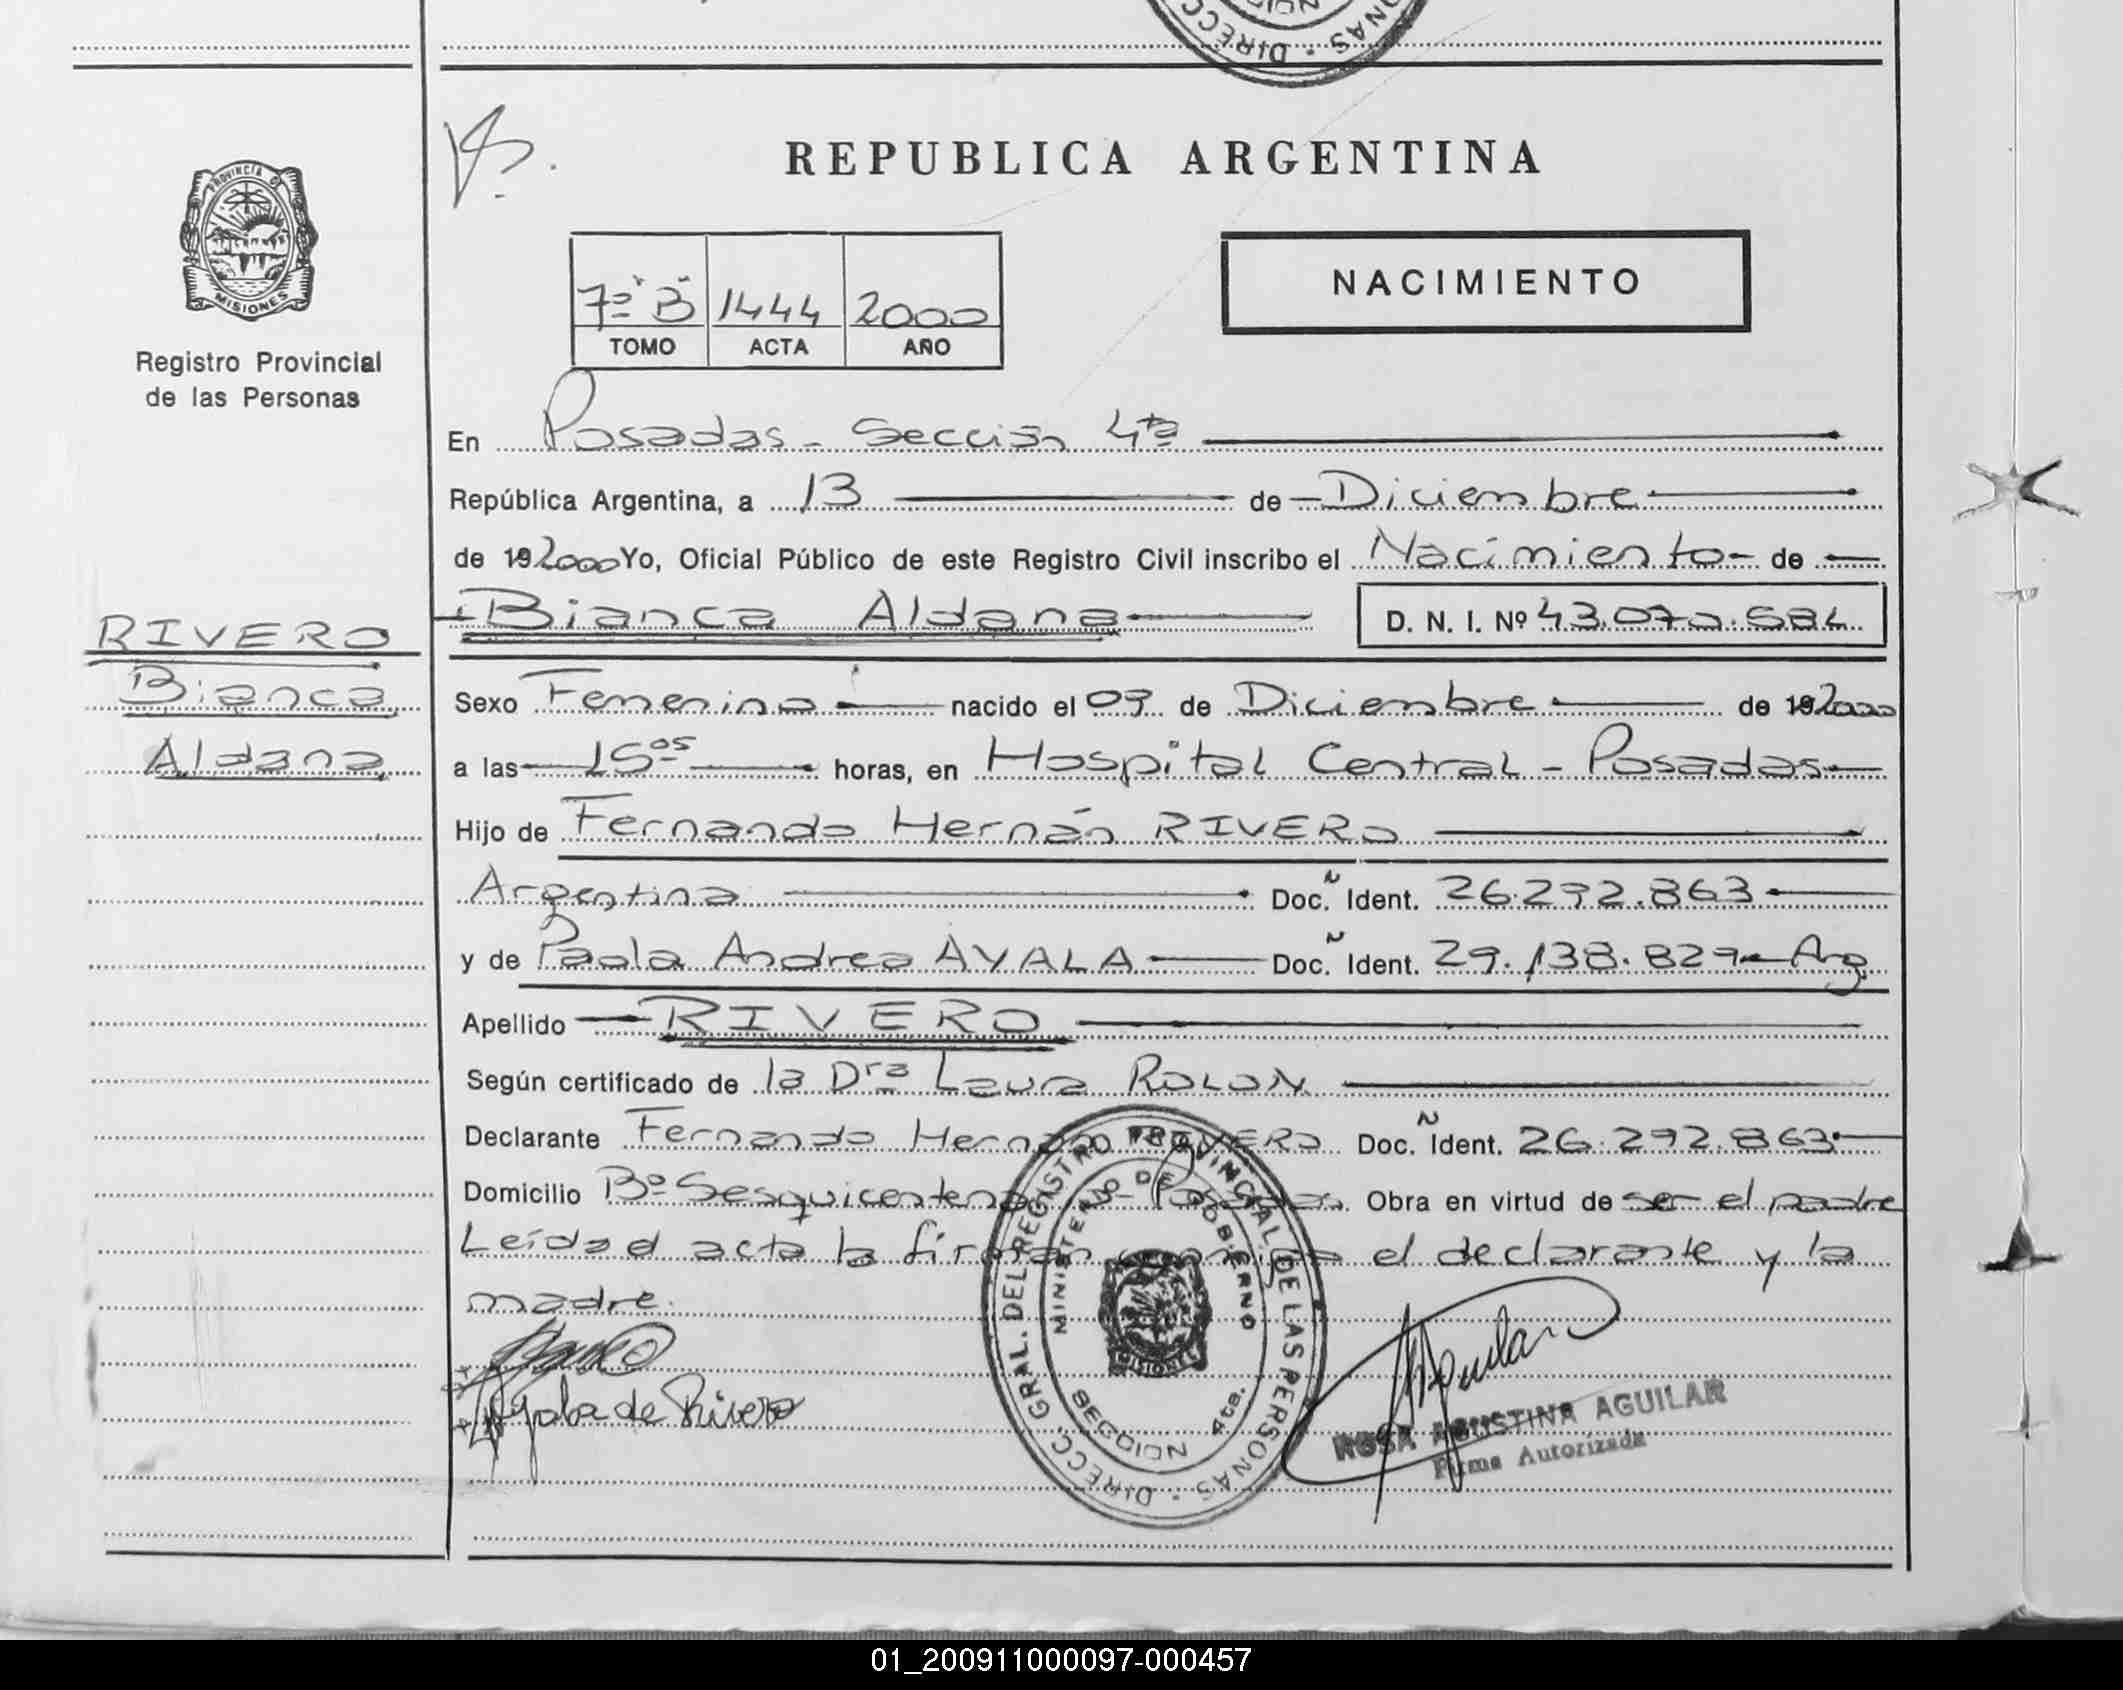 DIRECC
NAS
REPUBLICA ARGENTINA
PROVINCIA D
MISIONES
Registro Provincial
de las Personas
7º "B" 1444 2000
TOMO ACTA AÑO
NACIMIENTO
En Posadas - Sección 4ta
República Argentina, a 13 de Diciembre
de 192000 Yo, Oficial Público de este Registro Civil inscribo el Nacimiento - de
Bianca Aldana D. N. I. Nº
RIVERO
Bianca
Aldana
Sexo Femenino nacido el de Diciembre de 192000
a las 15 05 horas, en Hospital Central - Posadas
Hijo de Fernando Hernán RIVERO
Argentina Doc. Ident. 26.292.863
y de Paola Andrea AYALA Doc. Ident. 29.138.829 - Arg
Apellido RIVERO
Según certificado de la Dra Laura ROLON
Declarante Fernando Hernán RIVERO Doc. Ident. 26.292.863
Domicilio Bº Sesquicentenario - Posadas. Obra en virtud de ser el padre
Leída el acta la firman conmigo el declarante y la
madre.
Ayala de Rivero
DIRECC. GRAL. DEL REGISTRO PROVINCIAL DE LAS PERSONAS
MINISTERIO DE GOBIERNO
MISIONES
SECCION 4ta.
Aguilar
ROSA AGUSTINA AGUILAR
Firma Autorizada
01_200911000097-000457